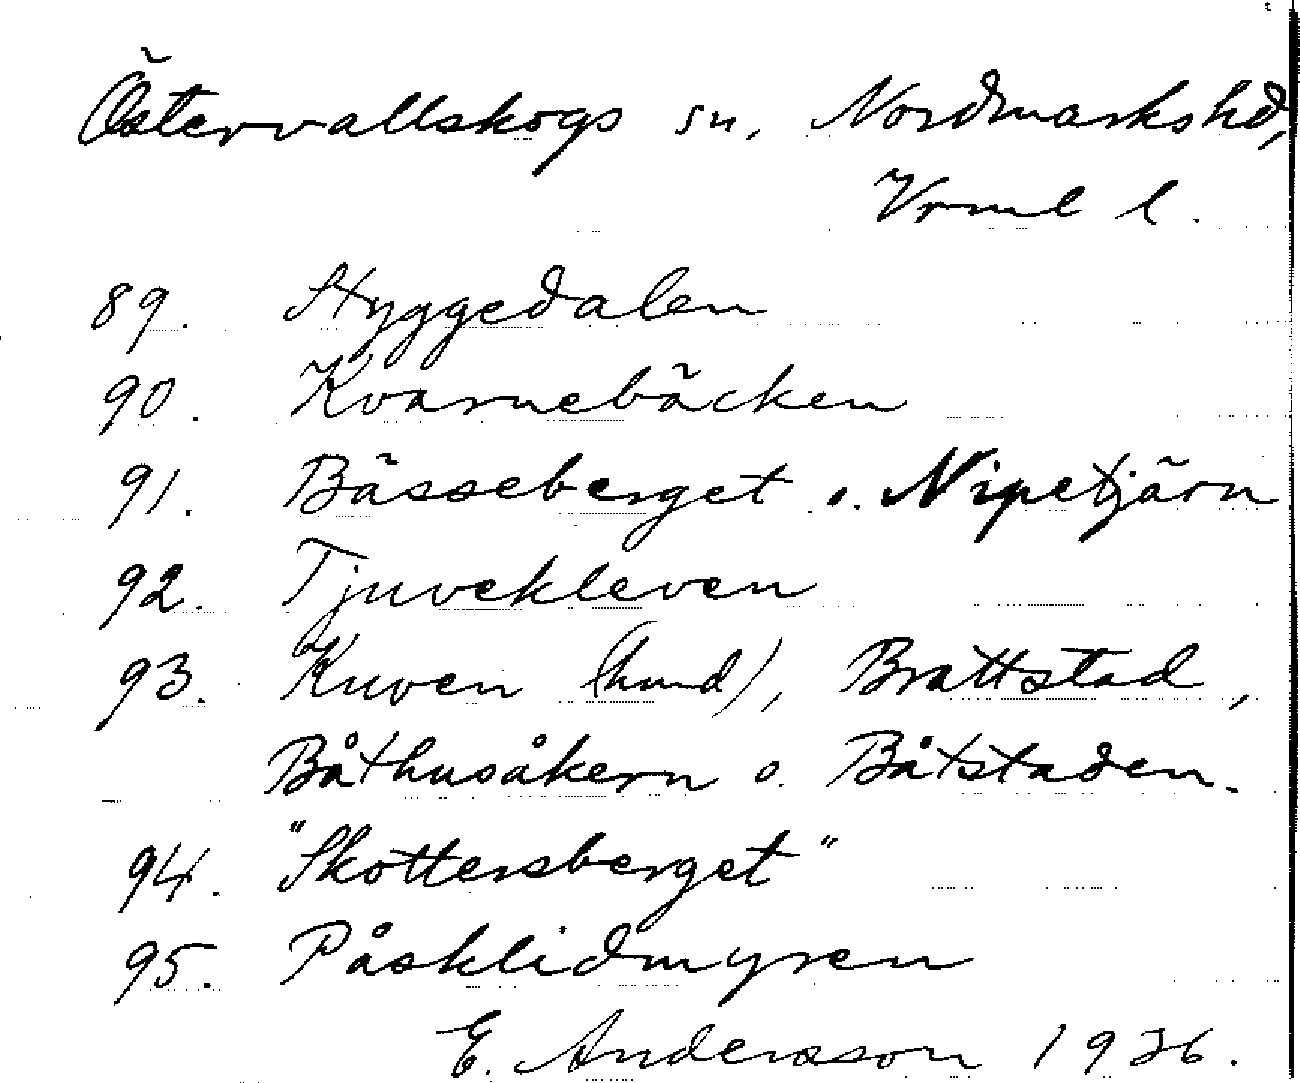 Östervallskogs sn, Nordmarkshd,
Vrml l.
89. Styggedalen
90. Kvarnebäcken
91. Bässeberget o. Nipetjärn
92. Tjuvekleven
93. Kuven (hund), Brattstad,
Båthusåkern o. Båtstaden.
94. "Skottersberget"
95. Påsklidmyren
E. Andersson 1936.